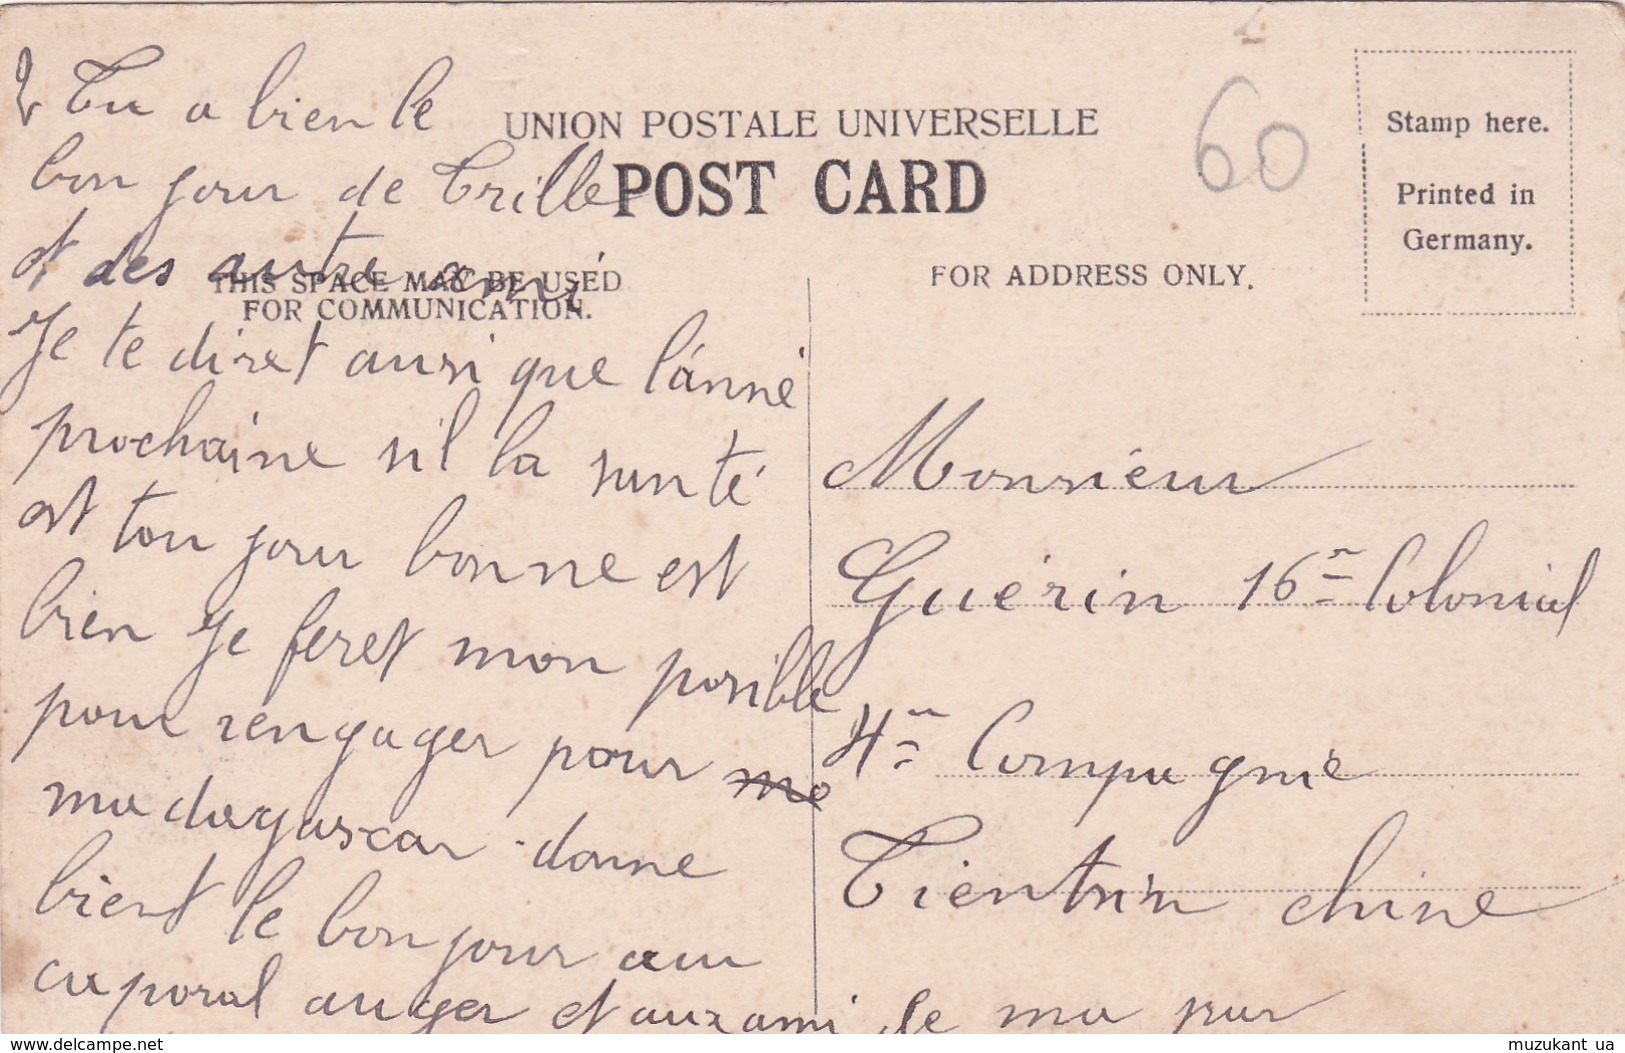 Tu a bien le
bon jour de Trille
et des autre ami
Je te diret ausi que l'anné
prochaine sil la santé
est ton jour bonne est
bien Je feret mon posible
pour rengager pour
madagascar donne
bient le bon jour au
caporal auger et aux ami de ma par
UNION POSTALE UNIVERSELLE
POST CARD
THIS SPACE MAY BE USED
FOR COMMUNICATION.
FOR ADDRESS ONLY.
60
Stamp here.
Printed in
Germany.
Monsieur
Guérin 16me Colonial
4me Compagnie
Tientsin chine
https://www.delcampe.net
muzukant_ua